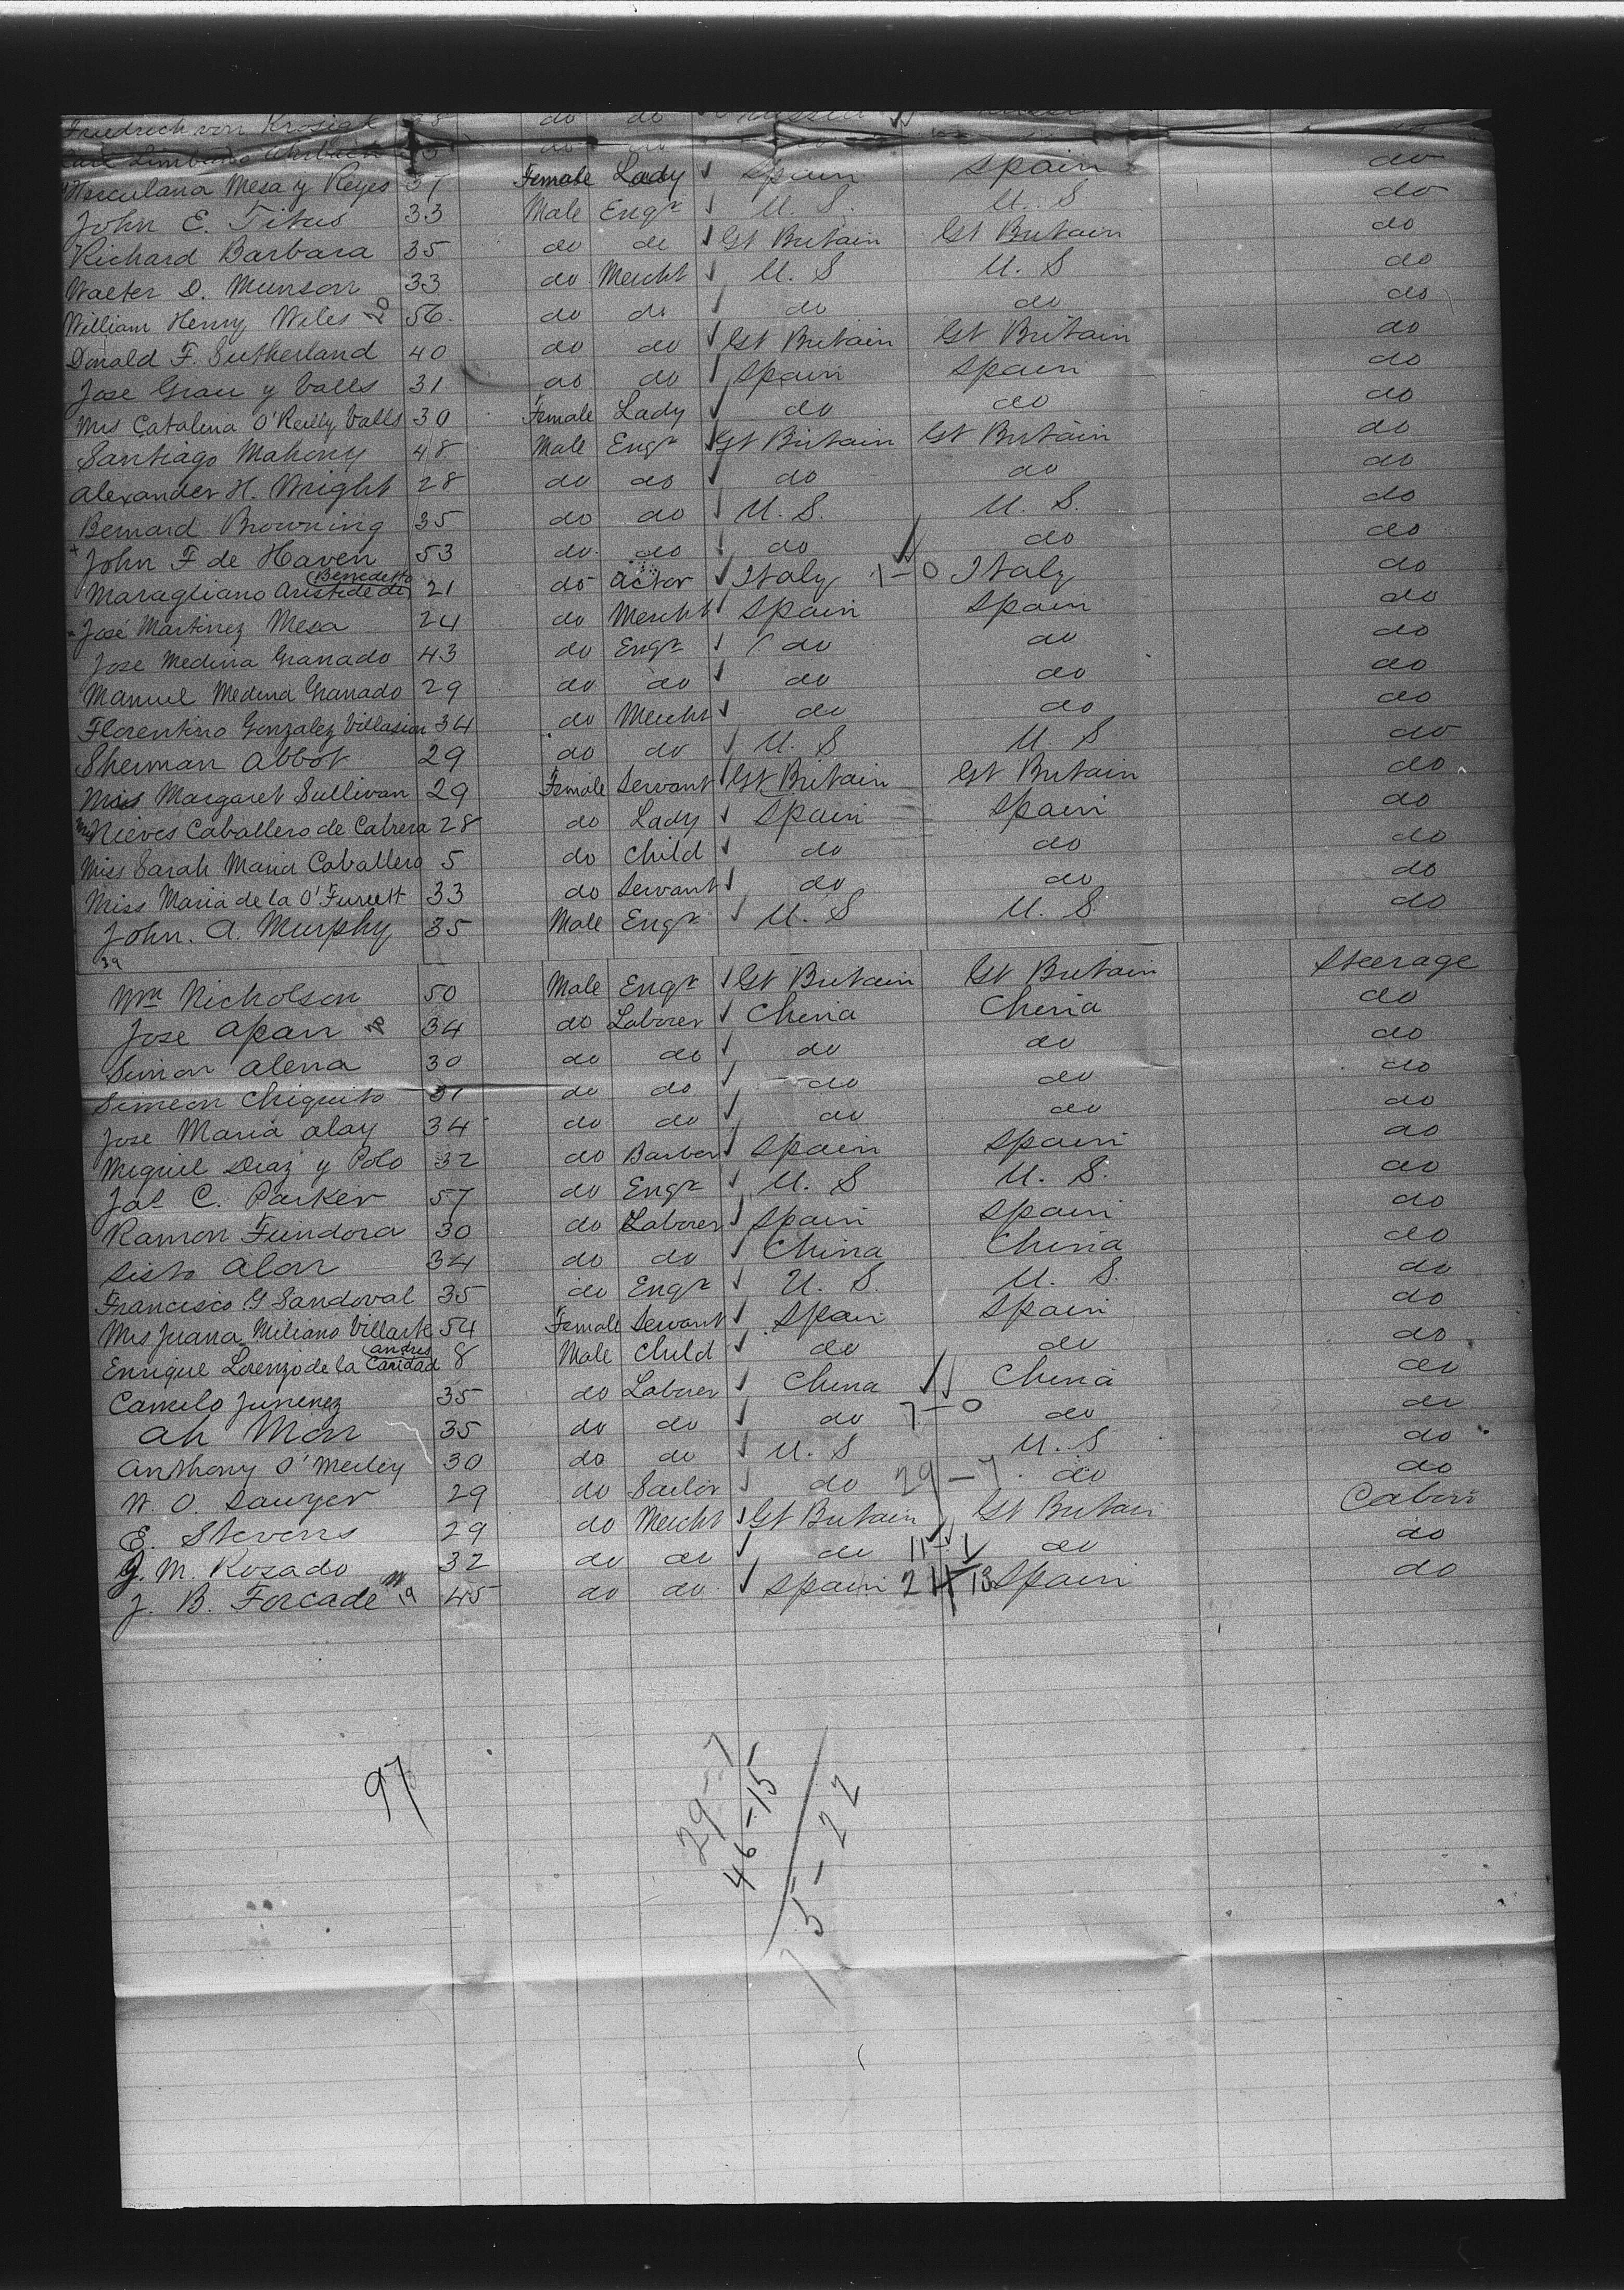 Friedrich von Krosigk 28 do do Russia
Herculana Mesa y Reyes 37 Female Lady ✓ Spain Spain do
John E. Titus 33 Male Engr ✓ U. S. U. S do
Richard Barbara 35 do do ✓ Gt Britain Gt Britain do
Walter D. Munson 33 do Mercht ✓ U. S U. S do
William Henry Wiles 20 56 do do ✓ do do do
Donald F. Sutherland 40 do do ✓ Gt Britain Gt Britain do
Jose Grau y Valls 31 do do ✓ Spain Spain do
Mrs Catalina O'Reilly Valls 30 Female Lady ✓ do do do
Santiago Mahony 48 Male Engr ✓ Gt Britain Gt Britain do
Alexander H. Wright 28 do do ✓ do do do
Bernard Browning 35 do do ✓ U. S. U. S. do
John F de Haven 53 do do ✓ do do do
Maragliano Aristede de Benedetto 21 do Actor ✓ Italy 1-0 Italy do
José Martinez Mesa 24 do Mercht ✓ Spain Spain do
Jose Medina Granado 43 do Engr ✓ do do do
Manuel Medina Granado 29 do do ✓ do do do
Florentino Gonzalez Villasion 34 do Mercht ✓ do do do
Sherman Abbot 29 do do ✓ U. S U. S do
Miss Margaret Sullivan 29 Female Servant ✓ Gt Britain Gt Britain do
Mrs Nieves Caballero de Cabrera 28 do Lady ✓ Spain Spain do
Miss Sarah Maria Caballero 5 do Child ✓ do do do
Miss Maria de la O' 33 do Servant ✓ do do do
John. A. Murphy 35 Male Engr ✓ U. S U. S. do
39
Wm Nicholson 50 Male Engr ✓ Gt Britain Gt Britain Steerage
Jose Apan 34 do Laborer ✓ China China do
Simon Alena 30 do do ✓ do do do
Simeon Chiquito 31 do do ✓ do do do
Jose Maria Alay 34 do do ✓ do do do
Miguel Diaz y Polo 32 do Barber ✓ Spain Spain do
Jas C. Parker 57 do Engr ✓ U. S U. S. do
Ramon Fundora 30 do Laborer ✓ Spain Spain do
Sisto Alon 34 do do ✓ China China do
Francisco G Sandoval 35 do Engr ✓ U. S. U. S. do
Mrs Juana Miliano Villarte 54 Female Servant ✓ Spain Spain do
Enrique Lorenzo de la Caridad Andres 8 Male Child ✓ do do do
Camilo Jimenez 35 do Laborer ✓ China China do
Ah Mon 35 do do ✓ do 7-0 do do
Anthony O'Merley 30 do do ✓ U. S U. S do
W. O. Sawyer 29 do Sailor ✓ do 29-7 do do
E. Stevens 29 do Mercht ✓ Gt Britain Gt Britain Cabin
J. M. Rosado 32 do do ✓ do 11-1 do do
J. B. Forcade 19 45 do do ✓ Spain Spain do
97
29-7
46-15
75-22